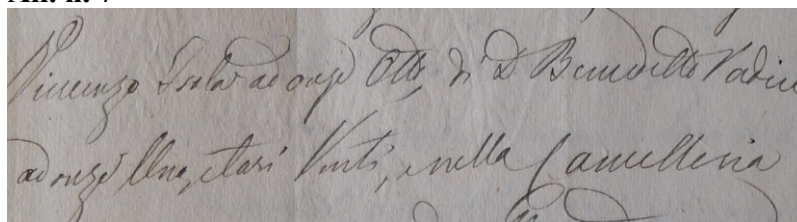 Vincenzo Isola ad onze Otto, di D. Benedetto Vadin
ad onze Una, e tarì Venti, e nella Cancelleria